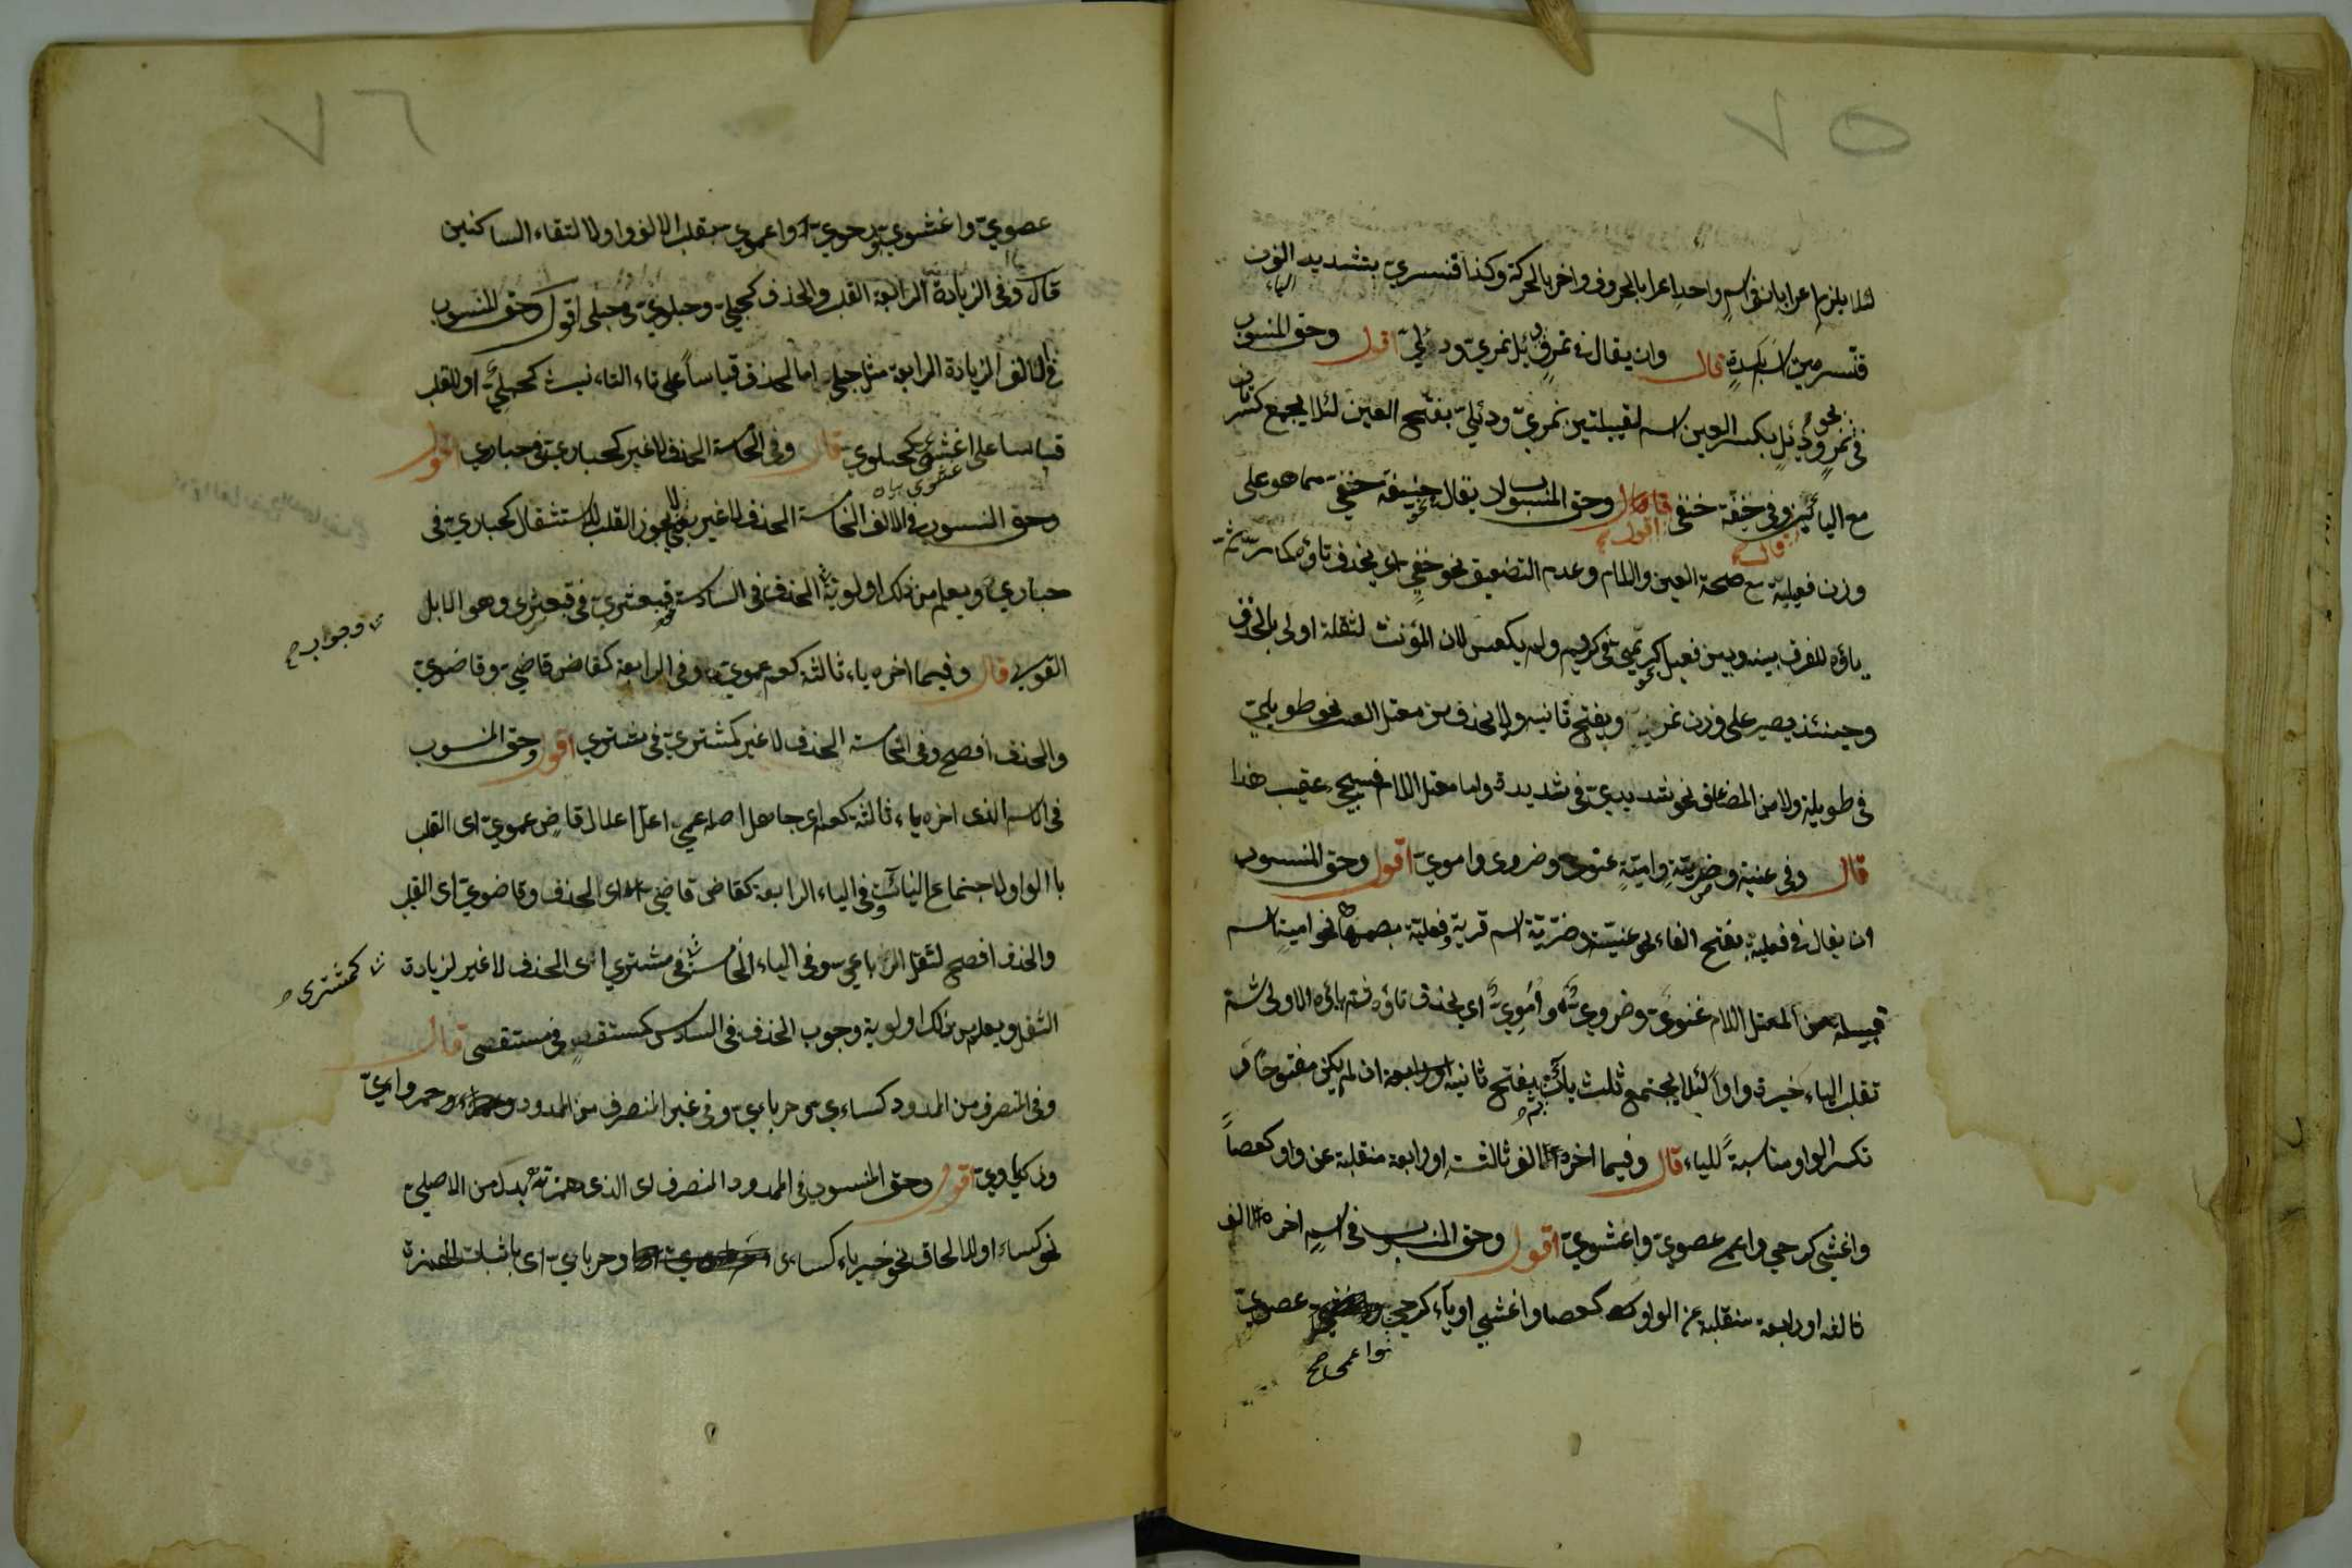 ٧٥
لئلا يلزم اعرابان في اسم واحد اعرابا بالحروف واخر بالحركة وكذا قنسري بتشديد النون
الياء
قنسرين اسم بلدة قال وان يقال في نمر ودئل نمري ودئلي اقول وحق المنسوب
في نحو نمر ودئل بكسر العين اسم لقبيلتين نمري ودئلي بفتح العين لئلا يجمع كسرتان
مع اليائين وفي حنيفة حنفي قال اقول وحق المنسوب ان يقال في نحو حنيفة حنفي مما هو على
قال اقول
وزن فعيلة مع صحة العين واللام وعدم التضعيف نحو حنفي اي بحذف تاؤه كما مر ثم
ياؤه للفرق بينه وبين فعيل نحو كريمي في كريم ولم يعكس لان المؤنث لثقله اولى بالحذف
وحينئذ يصير على وزن نمري ويفتح ثانيه ولا يحذف من معتل العين نحو طويلي
في طويلة ولا من المضاعف نحو شديدي في شديدة واما معتل اللام فسيجيء عقيب هذا
قال وفي غنية وضرية وامية غنوي وضروي واموي اقول وحق المنسوب
ان يقال في فعيلة بفتح الفاء نحو غنية وضرية اسم قرية وفعيلة بضمها نحو امية اسم
قبيلة من المعتل اللام غنوي وضروي واموي اي بحذف تاؤه ثم ياؤه الاولى ثم
تقلب الياء خيرة واوا لئلا يجتمع ثلث يآت ثم يفتح ثانيه ان لم يكن مفتوحا و
تكسر الواو مناسبة للياء قال وفيما اخره الف ثالثة او رابعة منقلبة عن واو كعصا
واغشى كرحي واعمى عصوي واغشوي اقول وحق المنسوب في اسم اخره الف
ثالثة او رابعة منقلبة عن الواو كعصا واغشى او ياء كرحي عصوي
واعمى صح
٧٦
عصوي واغشوي ورحوي واعموي بقلب الالف واوا لالتقاء الساكنين
قال وفي الزيادة الرابعة القلب والحذف كحبلي وحبلوي في حبلى اقول وحق المنسوب
في الالف الزيادة الرابعة مثل حبلى اما الحذف قياسا على تاء التانيث كحبلي او القلب
قياسا على اغشوي كحبلوي قال وفي الخامسة الحذف لا غير كحباري في حبارى اقول
وحق المنسوب في الالف الخامسة الحذف لا غير يعني لا يجوز القلب للاستثقال كحباري في
حبارى ويعلم من ذلك اولوية الحذف في السادسة نحو قبعثري في قبعثرى وهو الابل
وجواب صح
القوي قال وفيما اخره ياء ثالثة كعم عموي وفي الرابعة كقاض قاضي وقاضوي
والحذف افصح وفي الخامسة الحذف لا غير كمشتري في مشتري اقول وحق المنسوب
في الاسم الذي اخره ياء ثالثة كعم اي جاهل اصله عمي اعل اعلال قاض عموي اي القلب
بالواو لاجتماع اليائات وفي الياء الرابعة كقاض قاضي اي الحذف وقاضوي اي القلب
والحذف افصح لثقل الرباعي وفي الياء الخامسة في مشتري اي الحذف لا غير لزيادة
كمشتري صح
الثقل ويعلم من ذلك اولوية وجوب الحذف في السادس كمستقصي في مستقصي قال
وفي المنصرف من الممدود كساءي وحرباءي وفي غير المنصرف من الممدود وحمراوي
اقول وحق المنسوب في الممدود المنصرف اي الذي همزته بدل من الاصلي
نحو كساء او للالحاق نحو حرباء كساءي وحرباءي اي باثبات الهمزة